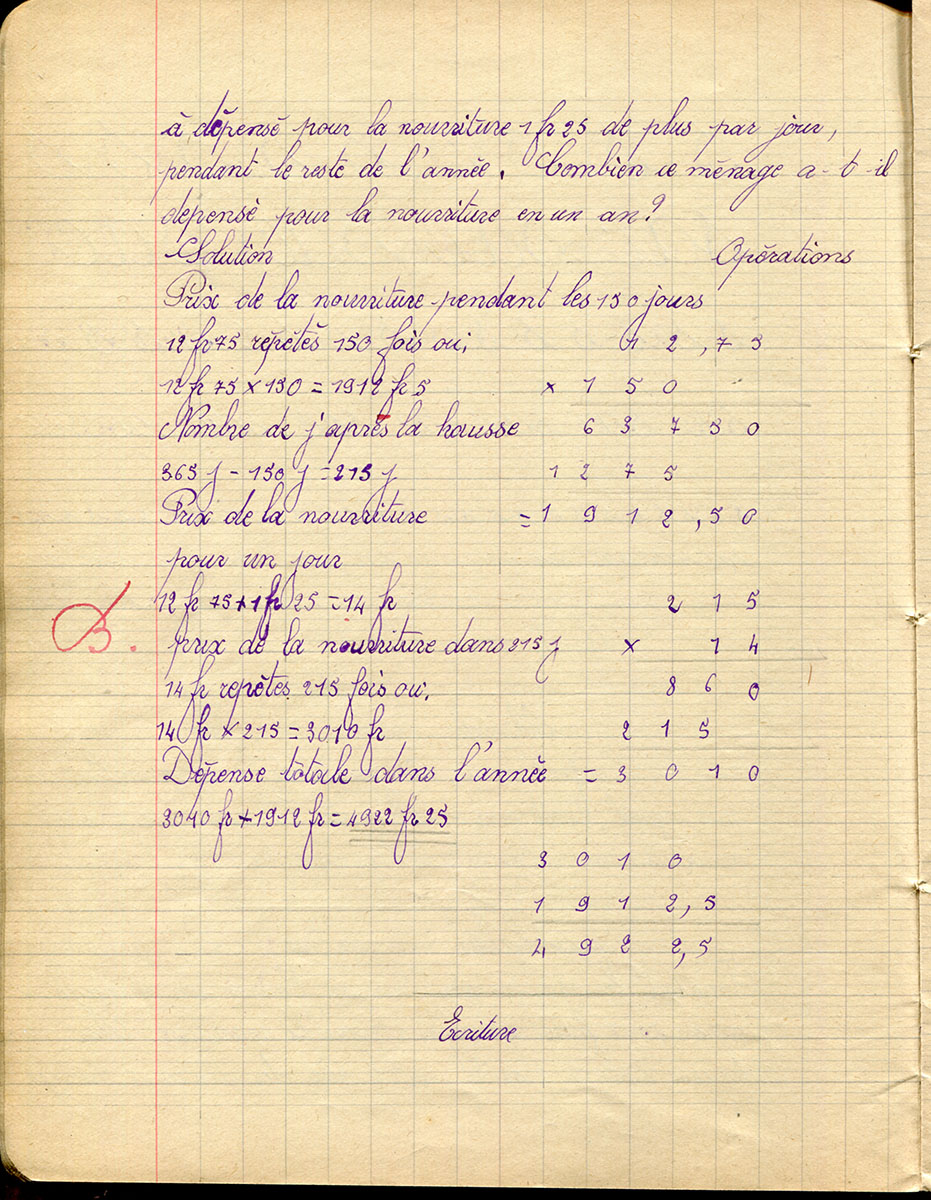 à dépensé pour la nourriture 1 fr 25 de plus par jour,
pendant le reste de l'année. Combien ce ménage a-t-il
dépensé pour la nourriture en un an?
Solution Opérations
Prix de la nourriture pendant les 150 jours
12 fr 75 répétés 150 fois ou; 12,75
12 fr 75 × 150 = 1912 fr 5 × 150
Nombre de j après la hausse 63750
365 j - 150 j = 215 j 1275
Prix de la nourriture = 1912,50
pour un jour
12 fr 75 + 1 fr 25 = 14 fr 215
B.
prix de la nourriture dans 215 j × 14
14 fr repétes 215 fois ou; 860
14 fr × 215 = 3010 fr 215
Dépense totale dans l'année = 3010
3010 fr + 1912 fr = 4922 fr 25
3010
1912,5
4922,5
Ecriture